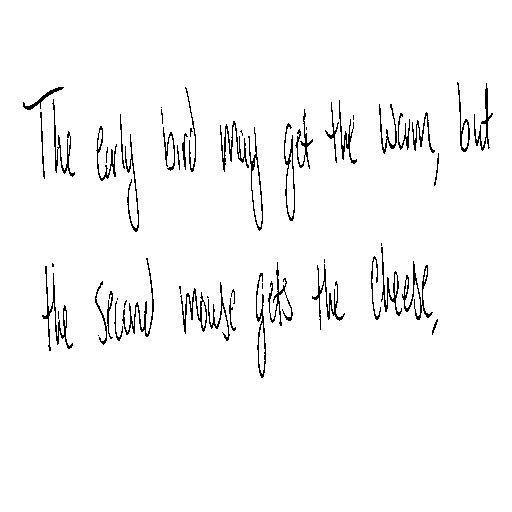 The early bird may get the worm, but
the second mouse gets the cheese,